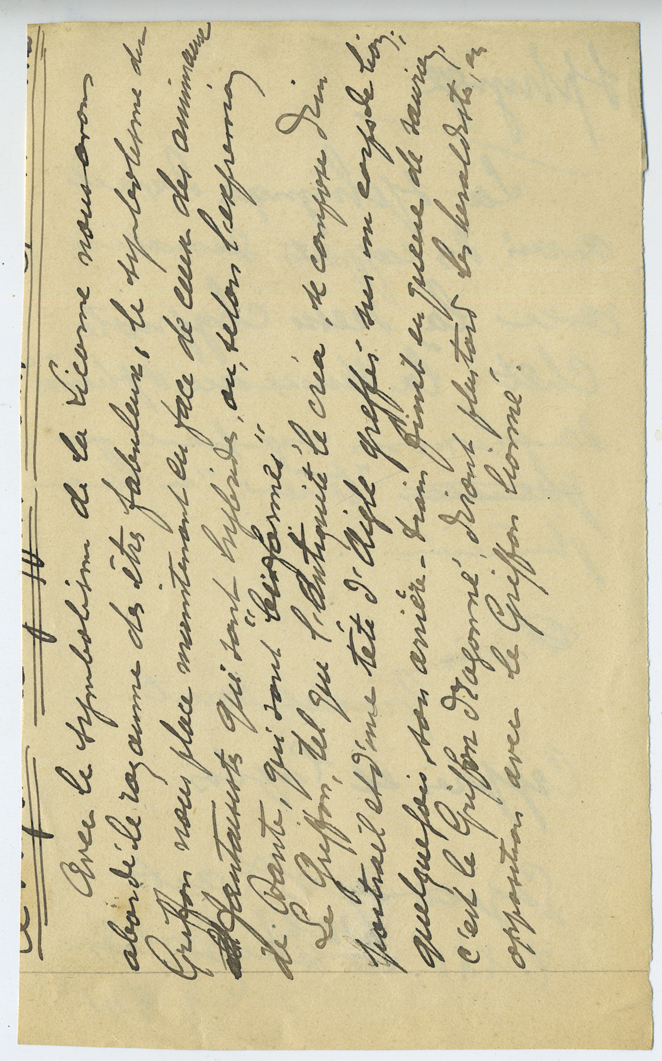 Avec le symbolisme de la Licorne nous avons
abordé le royaume des êtres fabuleux, le symbolisme du
Griffon nous place maintenant en face de ceux des animaux
fantaisistes qui sont hybrides, ou, selon l'expression
de Dante, qui sont "biformes".
Le Griffon, tel que l'antiquité le créa se compose d'un
poitrail et d'une tête d'Aigle greffés sur un corps de lion;
quelquefois son arrière-train finit en queue de saurien,
c'est le Griffon dragonné, diront plus tard les héraldistes, en
opposition avec le Griffon lionné.